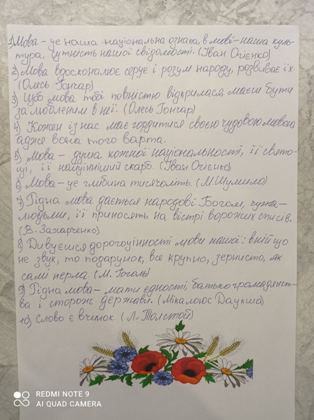 1) Мова - це наша національна ознака, в мові - наша куль-
тура, сутність нашої свідомості. (Іван Огієнко)
2) Мова вдосконалює серце і розум народу, розвиває їх
(Олесь Гончар)
3) Щоб мова тобі повністю відкрилася, маєш бути
залюбленим в неї. (Олесь Гончар)
4) Кожен із нас має гордитися своєю чудовою мовою
адже вона того варта.
5) Мова - душа кожної національності, її свято-
щі, її найцінніший скарб. (Іван Огієнко)
6) Мова - це глибина тисячоліть. (М. Шумило)
7) Рідна мова дається народові Богом, чужа -
людьми, її приносять на вістрі ворожих списів.
(В. Захарченко)
8) Дивуєшся дорогоцінності мови нашої: в ній що
не звук, то подарунок, все крупно, зернисто, як
самі перла. (М. Гоголь)
9) Рідна мова - мати єдності, батько громадянст-
ва і сторож держави. (Мікалоюс Даукша)
10) Слово є вчинок (Л. Толстой)
REDMI NOTE 9
AI QUAD CAMERA